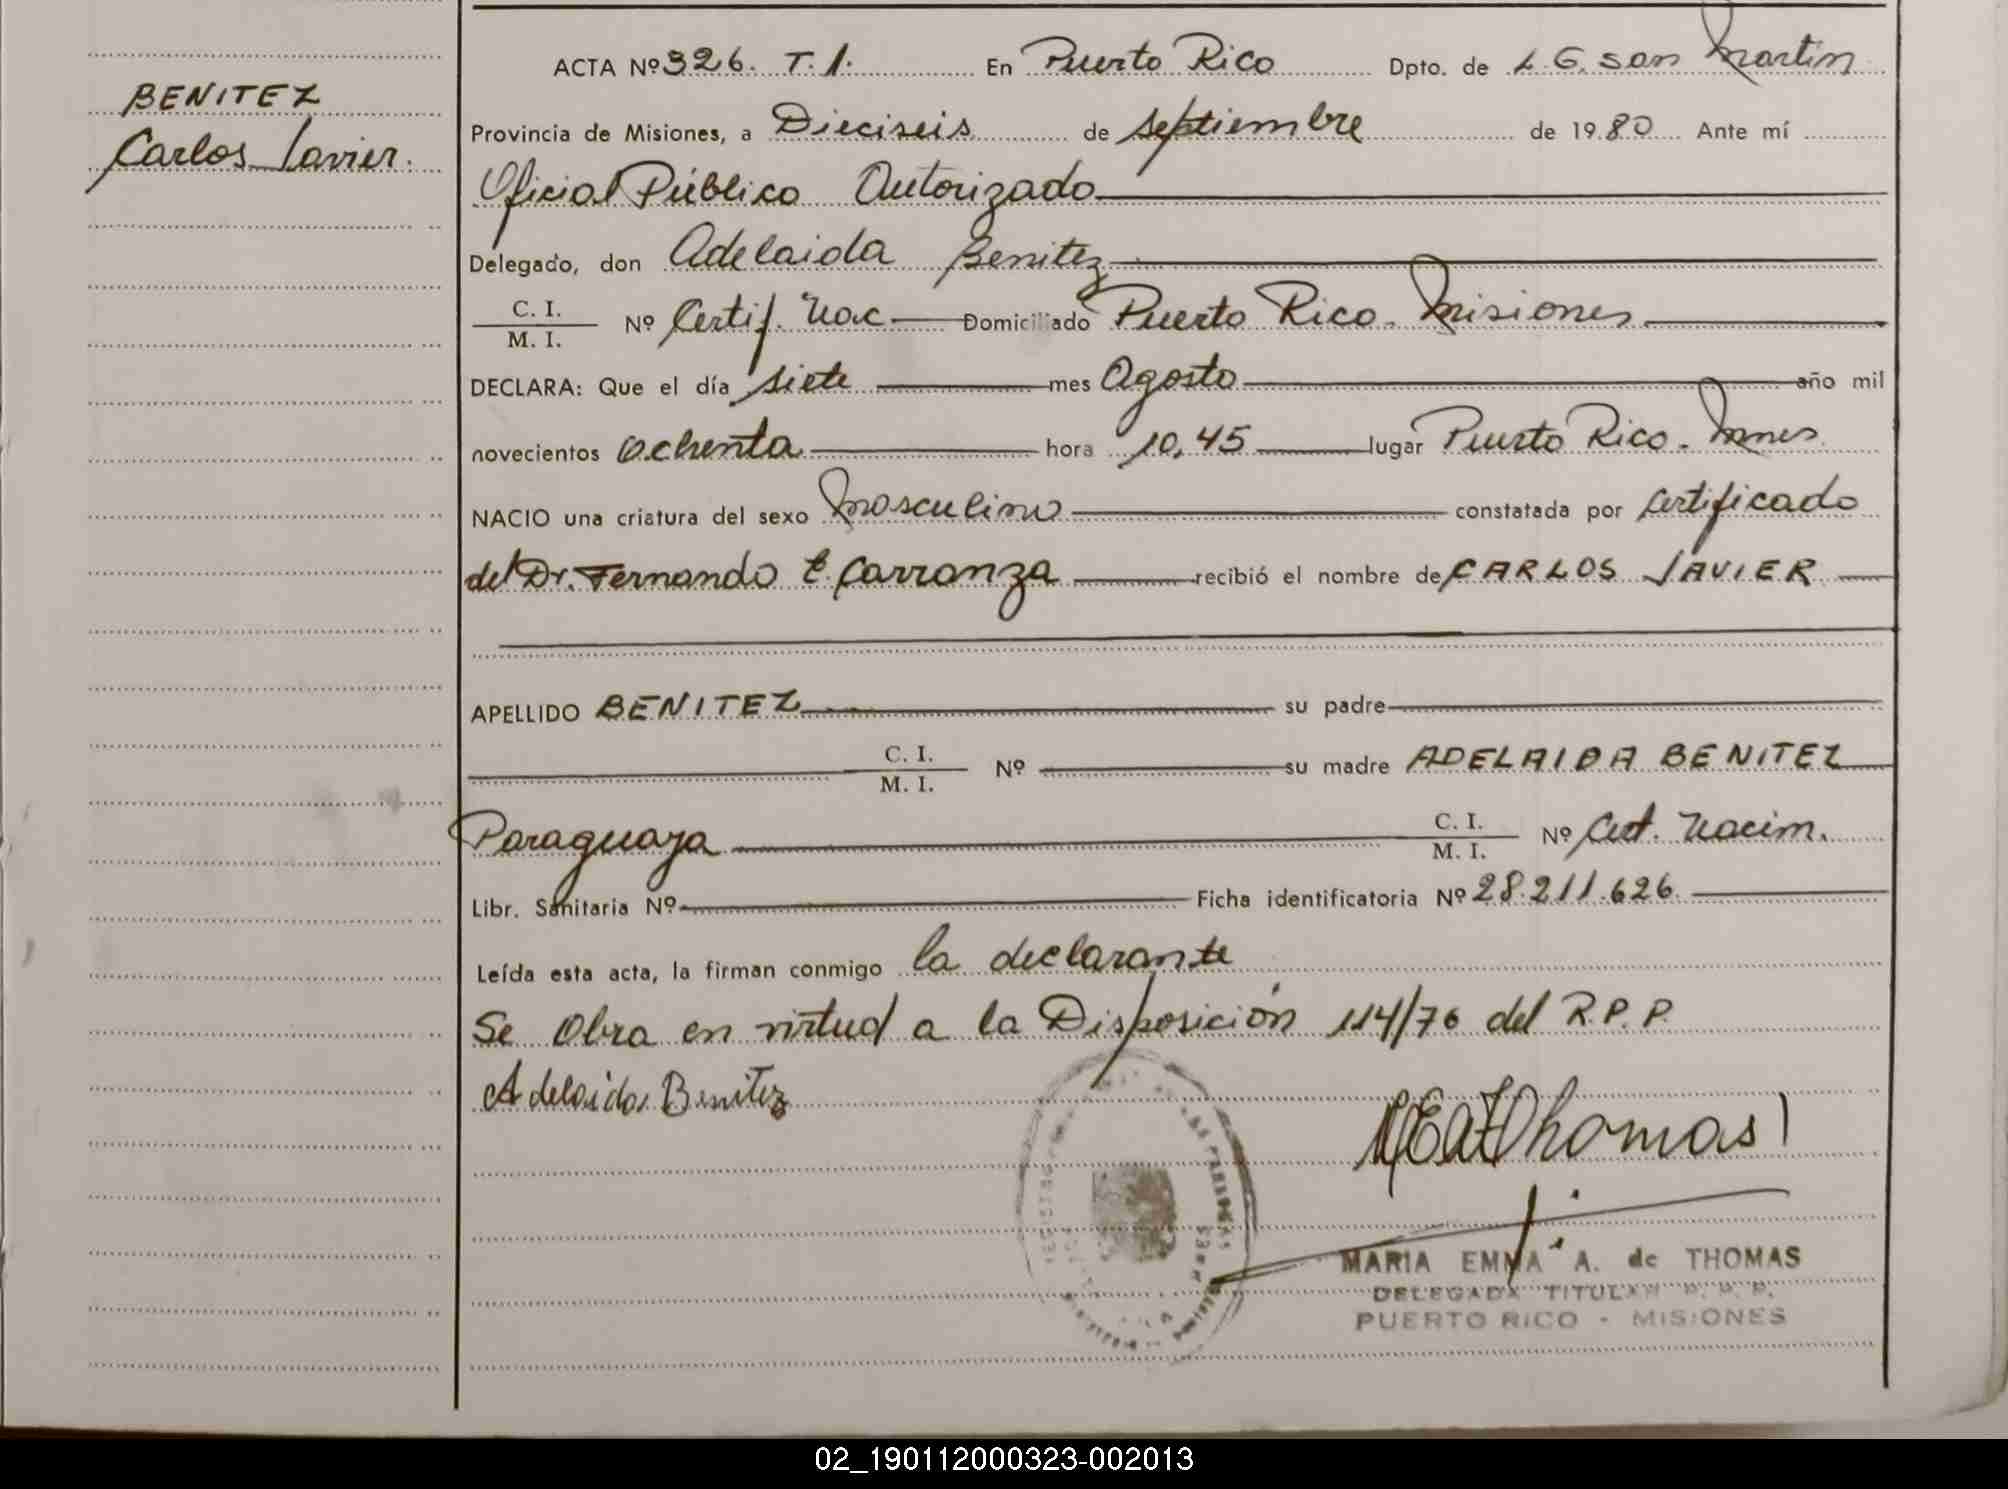 BENITEZ
Carlos Javier.
ACTA Nº 326. T. 1. En Puerto Rico Dpto. de L. G. San Martin
Provincia de Misiones, a Dieciseis de septiembre de 1980 Ante mí
Oficial Público Autorizado
Delegado, don Adelaida Benitez
C. I.
M. I.
Nº Certif. Nac Domiciliado Puerto Rico. Misiones
DECLARA: Que el día siete mes Agosto año mil
novecientos ochenta hora 10,45 lugar Puerto Rico. Mnes
NACIO una criatura del sexo masculino constatada por certificado
del Dr. Fernando E. Carranza recibió el nombre de CARLOS JAVIER
APELLIDO BENITEZ su padre
C. I.
M. I.
Nº su madre ADELAIDA BENITEZ
Paraguaya C. I.
M. I.
Nº Cert. Nacim.
Libr. Sanitaria Nº Ficha identificatoria Nº 28.211.626.
Leída esta acta, la firman conmigo la declarante
Se Obra en virtud a la Disposición 114/76 del R.P.P.
Adelaida Benitez
Thomas
MARIA EMMA A. de THOMAS
DELEGADA TITULAR R. P. P.
PUERTO RICO - MISIONES
02_190112000323-002013